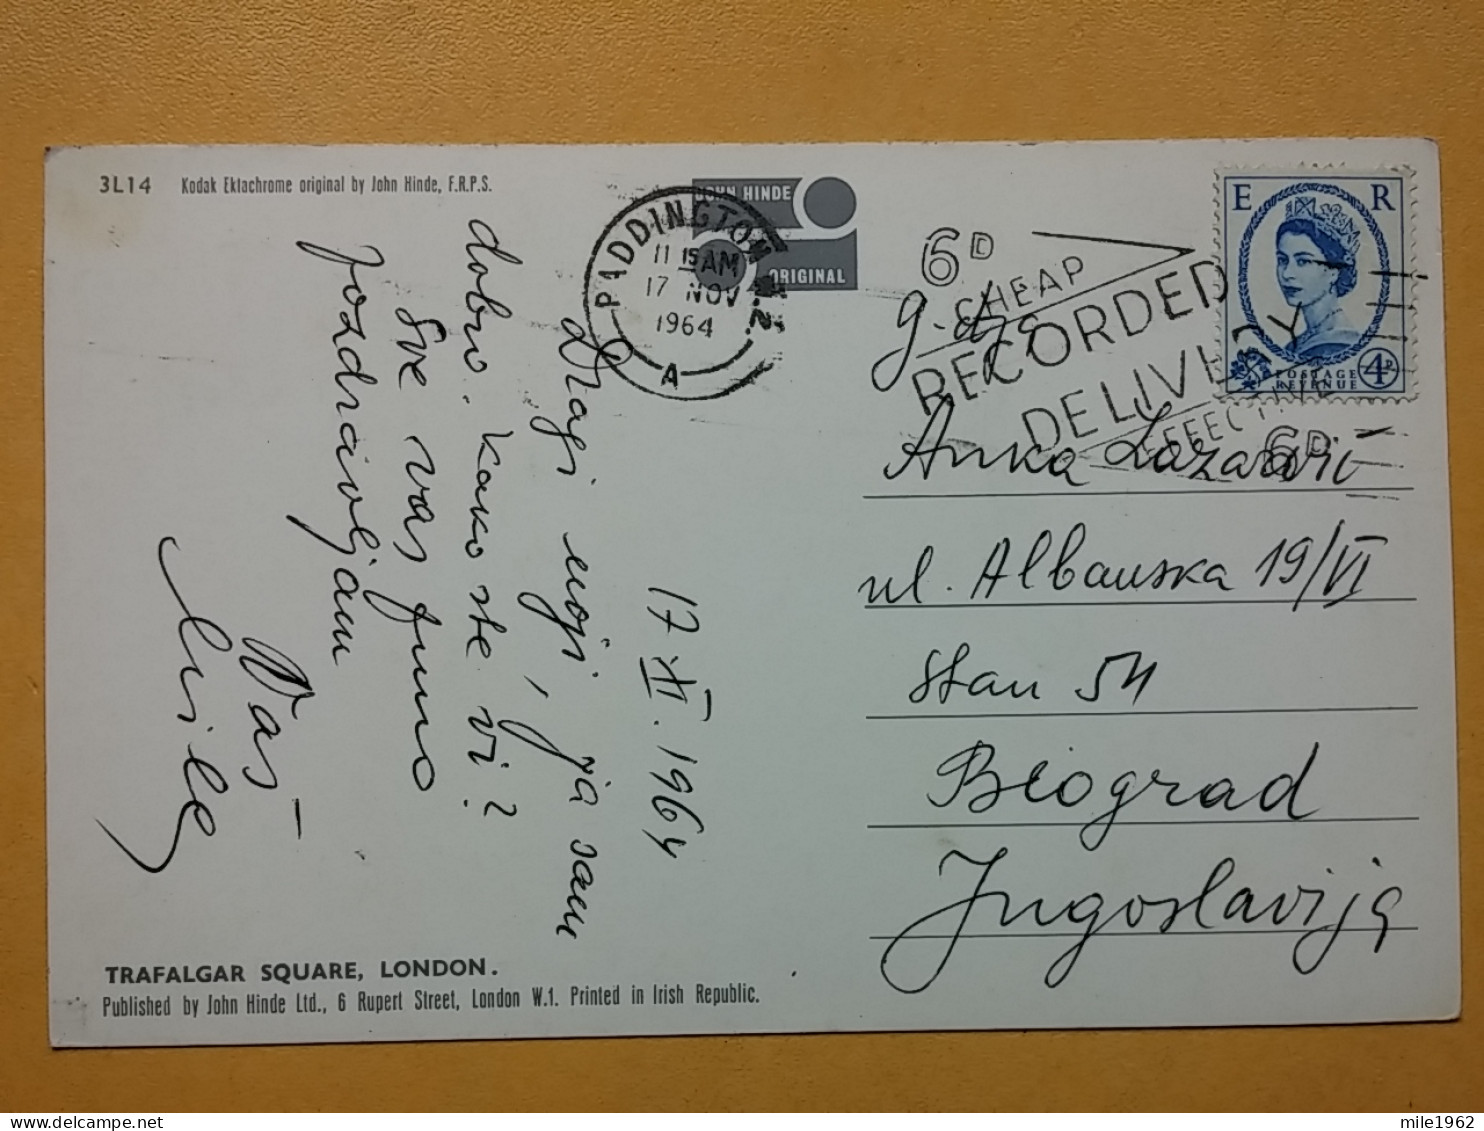 3L14 Kodak Ektachrome original by John Hinde, F.R.P.S.
JOHN HINDE
ORIGINAL
PADDINGTON W.2.
11 15 AM
17 NOV
1964
A
6D
CHEAP
RECORDED
DELIVERY
EFFECTIVE
6D
E R
POSTAGE
REVENUE
4D
17. XI. 1964
Dragi moji, ja sam
dobro. Kako ste vi?
Sve vas puno
pozdravljam
Vaš
Mile
g-dja
Anka Lazarović
ul. Albanska 19/VI
stan 54
Beograd
Jugoslavija
TRAFALGAR SQUARE, LONDON.
Published by John Hinde Ltd., 6 Rupert Street, London W.1. Printed in Irish Republic.
mile1962